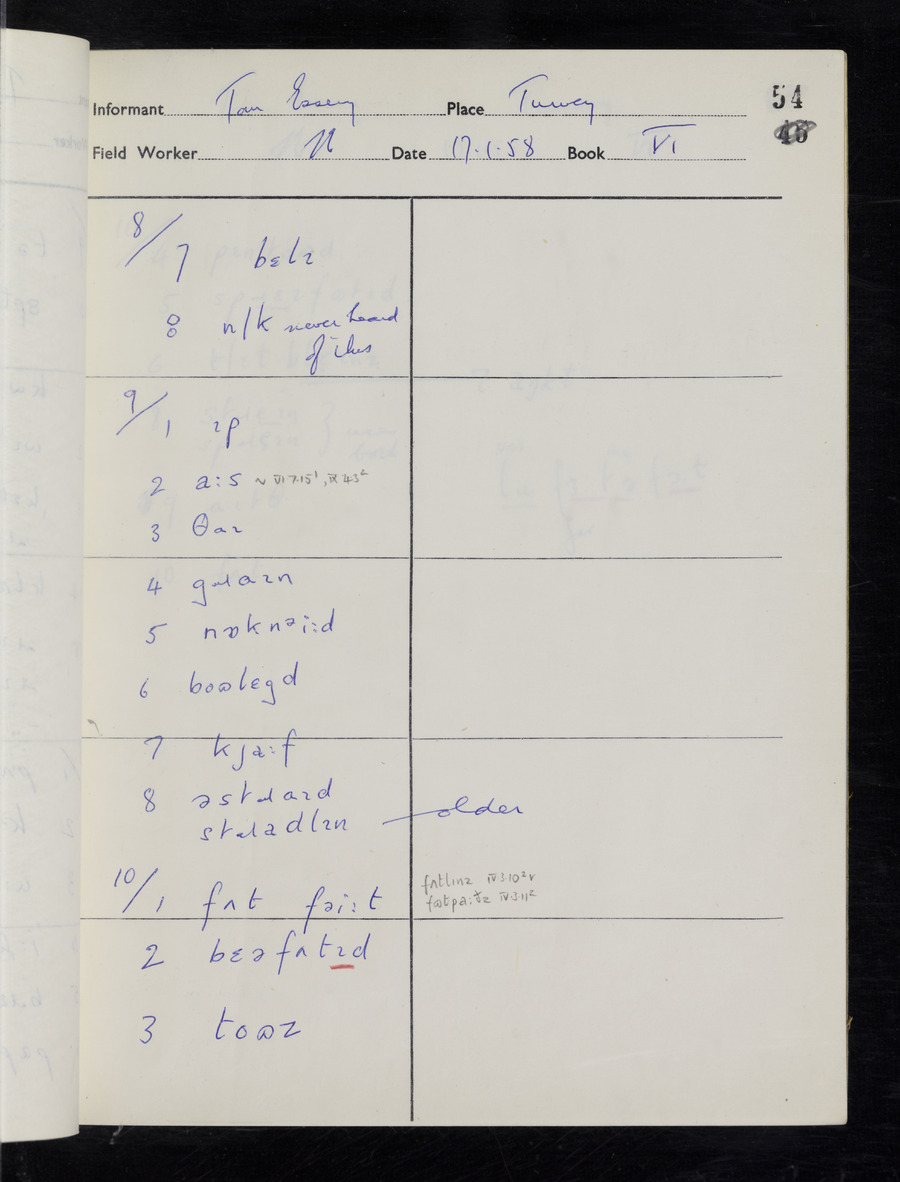 Informant Tom Essery Place Turvey 54
Field Worker N Date 17.1.58 Book VI
8/7 bɛlɪ
8 n/k never heard
of this
9/1 ɪp
2 a:s ~ VI 7.15¹, IX 4.3²
3 θaɪ
4 gɹaɪn
5 nɒknəi:d
6 boʊlɛgd
7 kja:f
8 əstɹaɪd
stɹadlɪn older
10/1 fʌt fəi:t fʌtlɪnz IV 3.10² v
fʊtpa:ðz IV 3.11²
2 bɛəfʌtɪd
3 toʊz